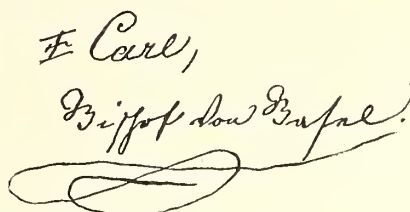 ☩ Carl,
Bischof von Basel.